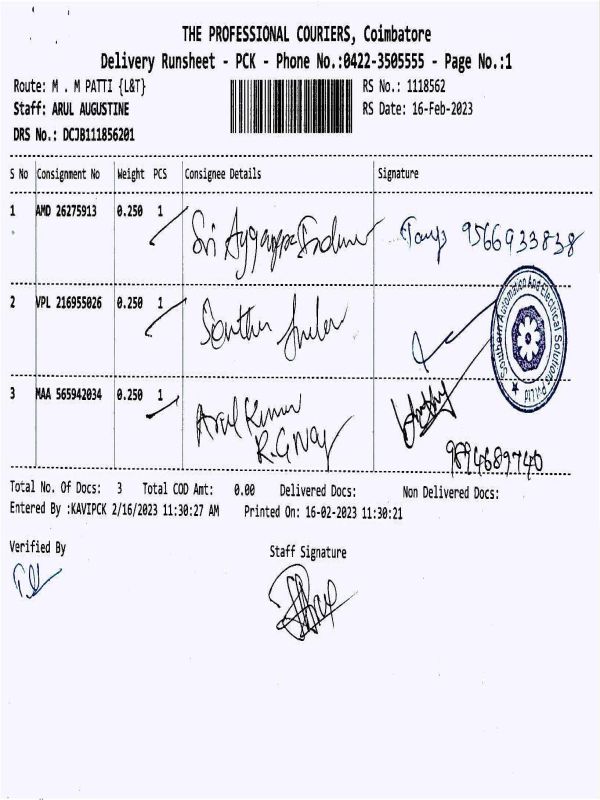 THE PROFESSIONAL COURIERS, Coimbatore
Delivery Runsheet - PCK - Phone No.:0422-3505555 - Page No.:1
Route: M . M PATTI {L&T}
RS No.: 1118562
Staff: ARUL AUGUSTINE
RS Date: 16-Feb-2023
DRS No.: DCJB111856201
S No Consignment No Weight PCS Consignee Details Signature
1 AMD 26275913 0.250 1 Sri 9566933838
2 VPL 216955026 0.250 1
Southern Automation And Electrical Solutions Pvt Ltd
3 MAA 565942034 0.250 1 Arul Kumar
9894689740
Total No. Of Docs: 3 Total COD Amt: 0.00 Delivered Docs: Non Delivered Docs:
Entered By :KAVIPCK 2/16/2023 11:30:27 AM Printed On: 16-02-2023 11:30:21
Verified By Staff Signature